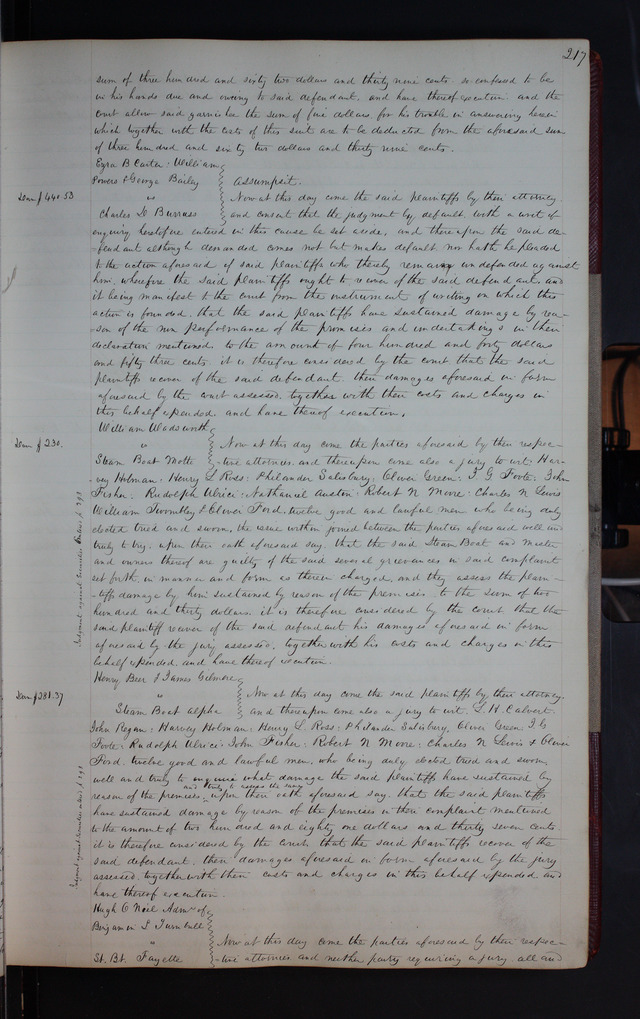 217
sum of three hundred and sixty two dollars and thirty nine cents so confessed to be
in his hands due and owing to said defendant, and have thereof execution. and the
court allow said garnishee the sum of five dollars for his trouble in answering herein
which together with the costs of this suit are to be deducted from the aforesaid sum
of three hundred and sixty two dollars and thirty nine cents.
Ezra B Carter: William
Powers & George Bailey Assumpsit.
Dam $440.53 " Now at this day come the said plaintiffs by their attorney
Charles D Burruss and consent that the judgment by default with a writ of
enquiry heretofore entered in this cause be set aside, and thereupon the said de-
-fendant although demanded comes not but makes default nor hath he pleaded
to the action aforesaid of said plaintiffs who thereby remain undefended against
him, wherefore the said plaintiffs ought to recover of the said defendant, and
it being manifest to the court from the instrument of writing on which this
action is founded, that the said plaintiffs have sustained damage by rea-
-son of the non performance of the promises and undertakings in their
declaration mentioned to the amount of four hundred and forty dollars
and fifty three cents it is therefore considered by the court that the said
plaintiffs recover of the said defendant their damages aforesaid in form
aforesaid by the court assessed, together with their costs and charges in
this behalf expended and have thereof execution.
William Wadsworth
Dam $230. " Now at this day come the parties aforesaid by their respec-
Steam Boat Motto -tive attornies. and thereupon come also a jury to wit: Har-
vey Holman: Henry L Ross: Philander Salisbury: Oliver Green: I. G Foote: John
Fisher. Rudolph Ulrici: Nathaniel Austin: Robert N Moore: Charles N Lewis
William Twombley & Oliver Ford, twelve good and lawful men who being duly
elected tried and sworn, the issue within joined between the parties aforesaid well and
truly to try, upon their oath aforesaid say, that the said Steam Boat and Master
and owners thereof are guilty of the said several grievances in said complaint
set forth in manner and form as therein charged, and they assess the plain-
-tiffs damage by him sustained by reason of the premises to the sum of two
hundred and thirty dollars. it is therefore considered by the court that the
said plaintiff recover of the said defendant his damages aforesaid in form
aforesaid by the jury assessed, together with his costs and charges in this
behalf expended, and have thereof execution.
Judgment against Securities entered p 298
Henry Beer & James Gilmore
Dam $281.37 " Now at this day come the said plaintiffs by their attorney.
Steam Boat Alpha and thereupon come also a jury to wit. S. H. Calvert:
John Regan: Harvey Holman: Henry L. Ross: Philander Salisbery, Oliver Green: I G
Foote: Rudolph Ulrici: John Fisher: Robert N Moore: Charles N Lewis & Oliver
Ford, twelve good and lawful men, who being duly elected tried and sworn
well and truly to inquire what damage the said plaintiff have sustained by
and truly to assess the same
reason of the premises, upon their oath aforesaid say, that the said plaintiffs
have sustained damage by reason of the premises in their complaint mentioned
to the amount of two hundred and eighty one dollars and thirty seven cents
it is therefore considered by the court that the said plaintiffs recover of the
said defendant, their damages aforesaid in form aforesaid by the jury
assessed, together with their costs and charges in this behalf expended and
have thereof execution.
Judgment against Securities entered p 298
Hugh O Neil Admr of
Benjamin L Turnbull
" Now at this day come the parties aforesaid by their respec-
St. Bt. Fayette -tive attornies and neither party requiring a jury all and